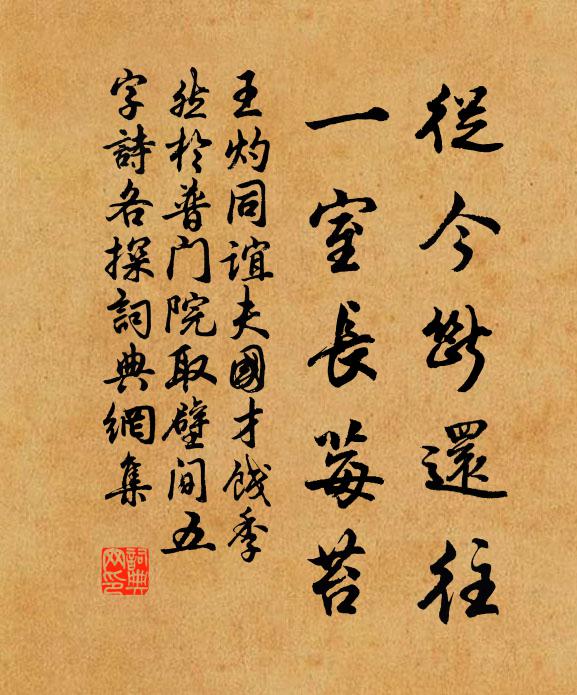 從今斷還往
一室長莓苔
王灼同誼夫國才餞季
然於普門院取壁间五
字詩各探詞典網集
詞典网印